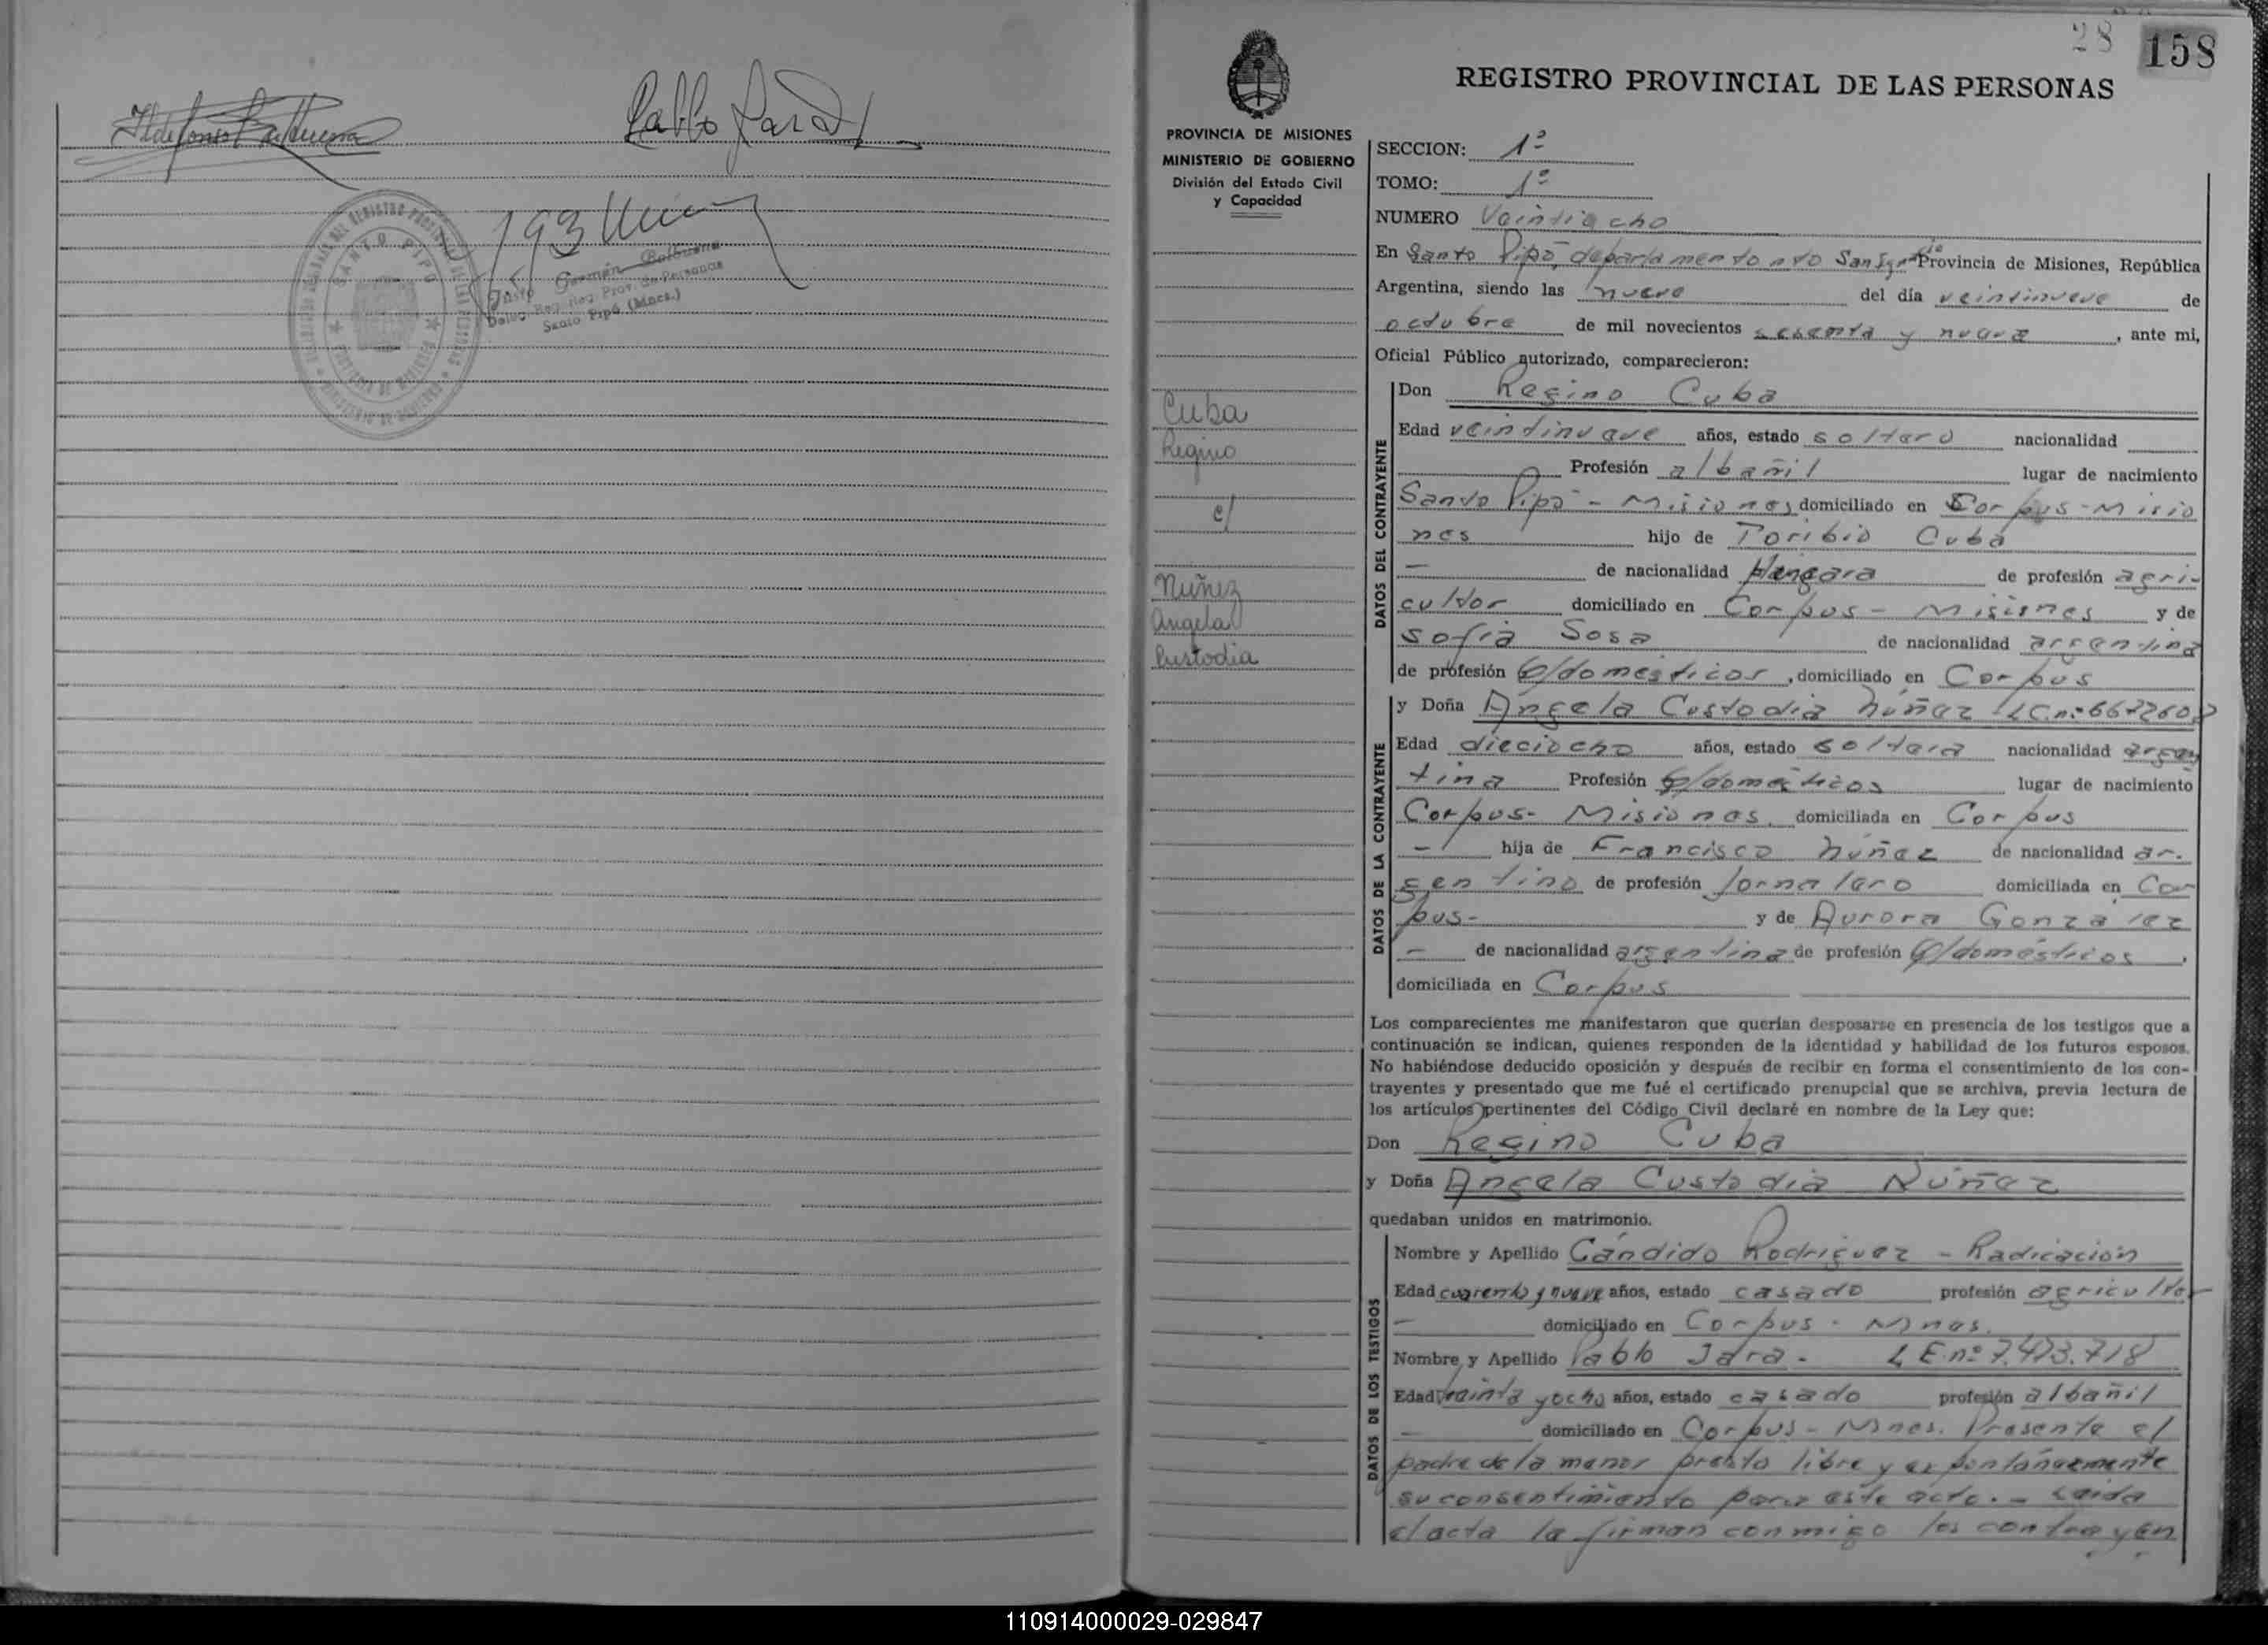 Pablo Jara
SANTO PIPÓ
Justo Germán Balbuena
Deleg. Reg. Prov. de Personas
Santo Pipó (Mnes.)
28 158
REGISTRO PROVINCIAL DE LAS PERSONAS
PROVINCIA DE MISIONES
MINISTERIO DE GOBIERNO
División del Estado Civil
y Capacidad
Cuba
Regino
c/
Nuñez
Angela
Custodia
SECCION: 1º
TOMO: 1º
NUMERO Veintiocho
En Santo Pipó, departamento nto San Igncio Provincia de Misiones, República
Argentina, siendo las nueve del día veintinueve de
octubre de mil novecientos sesenta y nueve, ante mi,
Oficial Público autorizado, comparecieron:
DATOS DEL CONTRAYENTE
Don Regino Cuba
Edad veintinueve años, estado soltero nacionalidad
Profesión albañil lugar de nacimiento
Santo Pipó - Misiones domiciliado en Corpus - Misio
nes hijo de Toribio Cuba
— de nacionalidad de profesión agri-
cultor domiciliado en Corpus - Misiones y de
sofia Sosa de nacionalidad argentina
de profesión q/domésticos, domiciliado en Corpus
DATOS DE LA CONTRAYENTE
y Doña Angela Custodia Núñez LC.nº
Edad dieciocho años, estado soltera nacionalidad argen
tina Profesión q/domésticos lugar de nacimiento
Corpus- Misiones. domiciliada en Corpus
— hija de Francisco Núñez de nacionalidad ar-
gentino de profesión Jornalero domiciliada en Cor
pus- y de Aurora Gonzalez
— de nacionalidad argentina de profesión q/domésticos,
domiciliada en Corpus
Los comparecientes me manifestaron que querían desposarse en presencia de los testigos que a
continuación se indican, quienes responden de la identidad y habilidad de los futuros esposos.
No habiéndose deducido oposición y después de recibir en forma el consentimiento de los con-
trayentes y presentado que me fué el certificado prenupcial que se archiva, previa lectura de
los artículos pertinentes del Código Civil declaré en nombre de la Ley que:
Don Regino Cuba
y Doña Angela Custodia Núñez
quedaban unidos en matrimonio.
DATOS DE LOS TESTIGOS
Nombre y Apellido Cándido Rodriguez - Radicación
Edad cuarenta y nueve años, estado casado profesión agricultor
— domiciliado en Corpus - Mnes.
Nombre y Apellido Pablo Jara - L E. nº 7.473.718
Edad treinta y ocho años, estado casado profesión albañil
— domiciliado en Corpus - Mnes. Presente el
padre de la menor presta libre y expontáneamente
su consentimiento para este acto. - Leida
el acta la firman conmigo los contrayen
110914000029-029847